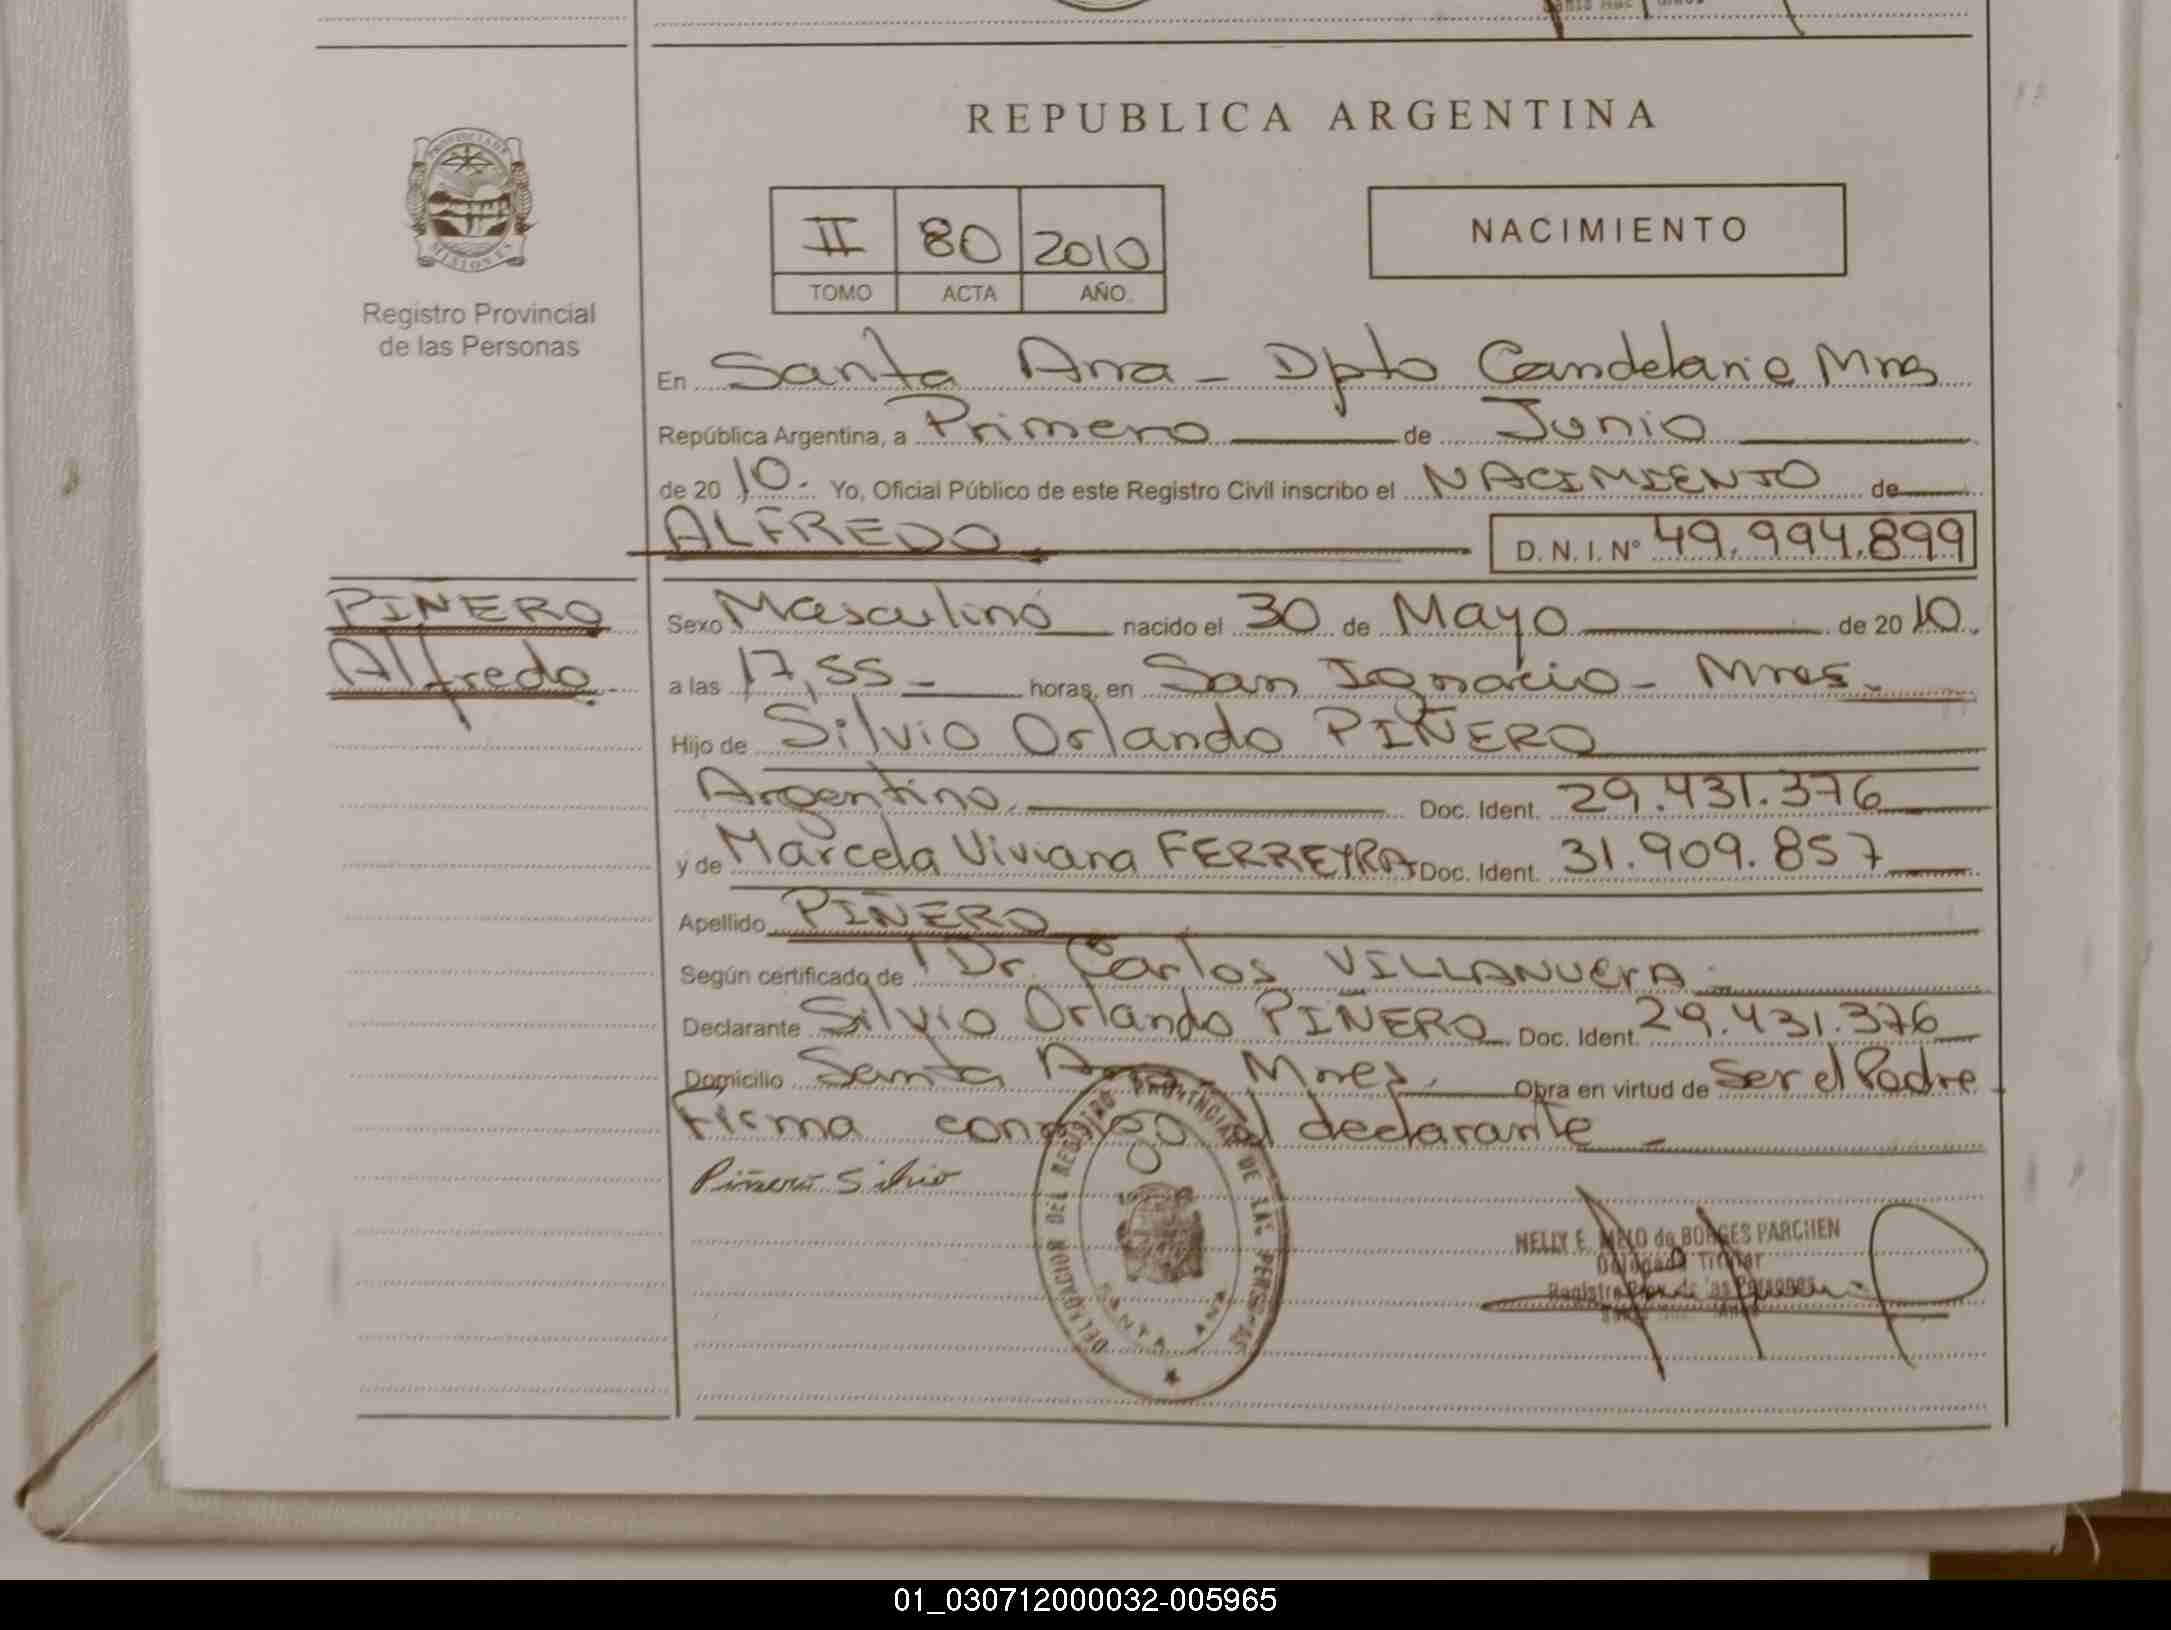 REPUBLICA ARGENTINA
PROVINCIA DE
MISIONES
Registro Provincial
de las Personas
II 80 2010
TOMO ACTA AÑO
NACIMIENTO
En Santa Ana - Dpto Candelaria Mnes
República Argentina, a Primero de Junio
de 20 10. Yo, Oficial Público de este Registro Civil inscribo el NACIMIENTO de
ALFREDO D.N.I. Nº 49.994.899
PIÑERO
Alfredo
Sexo Masculino nacido el 30 de Mayo de 20 10.
a las 17,55 - horas, en San Ignacio - Mnes.
Hijo de Silvio Orlando PIÑERO
Argentino. Doc. Ident. 29.431.376
y de Marcela Viviana FERREYRA Doc. Ident. 31.909.857
Apellido PIÑERO
Según certificado de Dr. Carlos VILLANUEVA
Declarante Silvio Orlando PIÑERO Doc. Ident. 29.431.376
Domicilio Santa Ana - Mnes. Obra en virtud de Ser el Padre
Firma conmigo el declarante -
Piñero Silvio
DELEGACION DEL REGISTRO PROVINCIAL DE LAS PERSONAS
SANTA ANA
NELLY E. MELO de BORGES PARCHEN
Delegada Titular
Registro Prov. de las Personas
Santa Ana Mnes
01_030712000032-005965